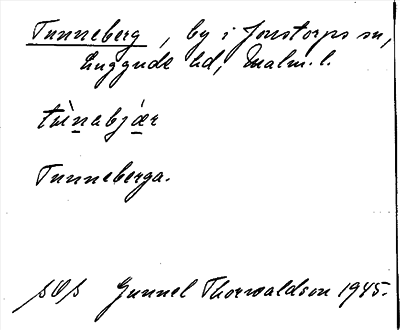 Tunneberg, by i Jonstorps sn,
Luggude hd, Malm. l.
tùnabjær
Tunneberga.
Gunnel Thorwaldson 1945.